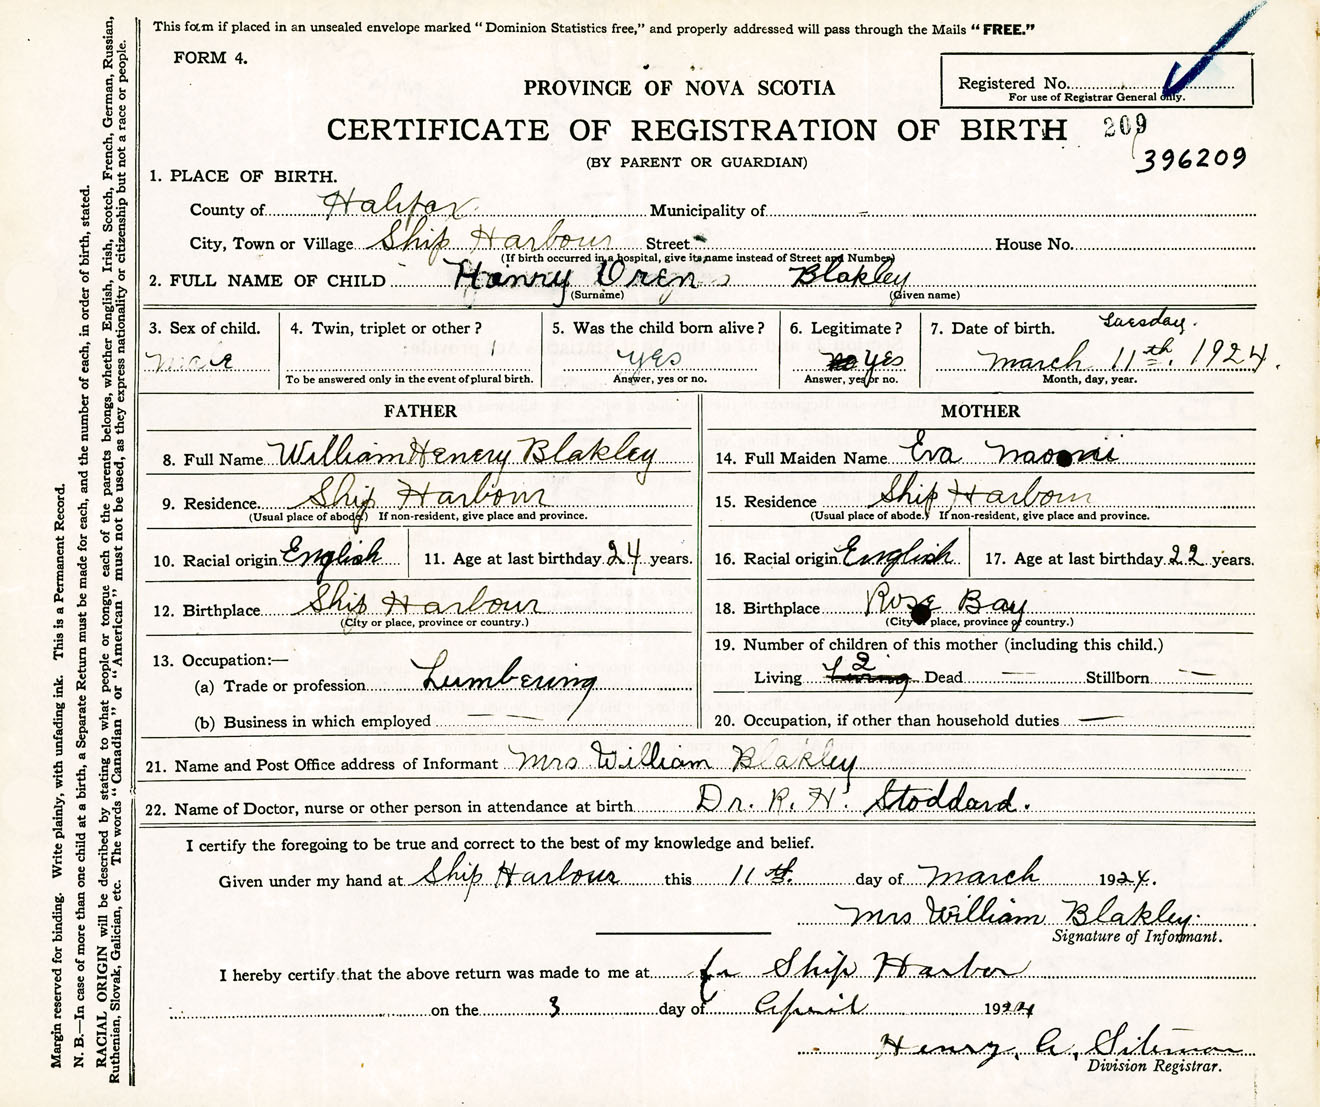 This form if placed in an unsealed envelope marked "Dominion Statistics free," and properly addressed will pass through the Mails "FREE."
FORM 4.
Registered No.
For use of Registrar General only.
PROVINCE OF NOVA SCOTIA
CERTIFICATE OF REGISTRATION OF BIRTH 209
396209
(BY PARENT OR GUARDIAN)
1. PLACE OF BIRTH.
County of Halifax Municipality of -
City, Town or Village Ship Harbour Street House No.
(If birth occurred in a hospital, give its name instead of Street and Number)
2. FULL NAME OF CHILD Hanry Oren Blakley
(Surname) (Given name)
3. Sex of child. 4. Twin, triplet or other? 5. Was the child born alive? 6. Legitimate? 7. Date of birth. Tuesday.
male yes yes March 11th. 1924.
To be answered only in the event of plural birth. Answer, yes or no. Answer, yes or no. Month, day, year.
FATHER MOTHER
8. Full Name William Henery Blakley
14. Full Maiden Name Eva Naomi
9. Residence Ship Harbour
(Usual place of abode) If non-resident, give place and province.
15. Residence Ship Harbour
(Usual place of abode.) If non-resident, give place and province.
10. Racial origin English 11. Age at last birthday 24 years.
16. Racial origin English 17. Age at last birthday 22 years.
12. Birthplace Ship Harbour
(City or place, province or country.)
18. Birthplace Rose Bay
(City or place, province or country.)
13. Occupation:—
(a) Trade or profession Lumbering
(b) Business in which employed — —
19. Number of children of this mother (including this child.)
Living 2 Dead — Stillborn —
20. Occupation, if other than household duties —
21. Name and Post Office address of Informant Mrs William Blakley
22. Name of Doctor, nurse or other person in attendance at birth Dr. R. H. Stoddard.
I certify the foregoing to be true and correct to the best of my knowledge and belief.
Given under my hand at Ship Harbour this 11th. day of March 1924.
Mrs William Blakley.
Signature of Informant.
I hereby certify that the above return was made to me at Ship Harbor
on the 3 day of April 1924
Henry. A. Siteman
Division Registrar.
Margin reserved for binding. Write plainly, with unfading ink. This is a Permanent Record.
N. B.—In case of more than one child at a birth, a Separate Return must be made for each, and the number of each, in order of birth, stated.
RACIAL ORIGIN will be described by stating to what people or tongue each of the parents belongs, whether English, Irish, Scotch, French, German, Russian,
Ruthenian, Slovak, Galician, etc. The words "Canadian" or "American" must not be used, as they express nationality or citizenship but not a race or people.